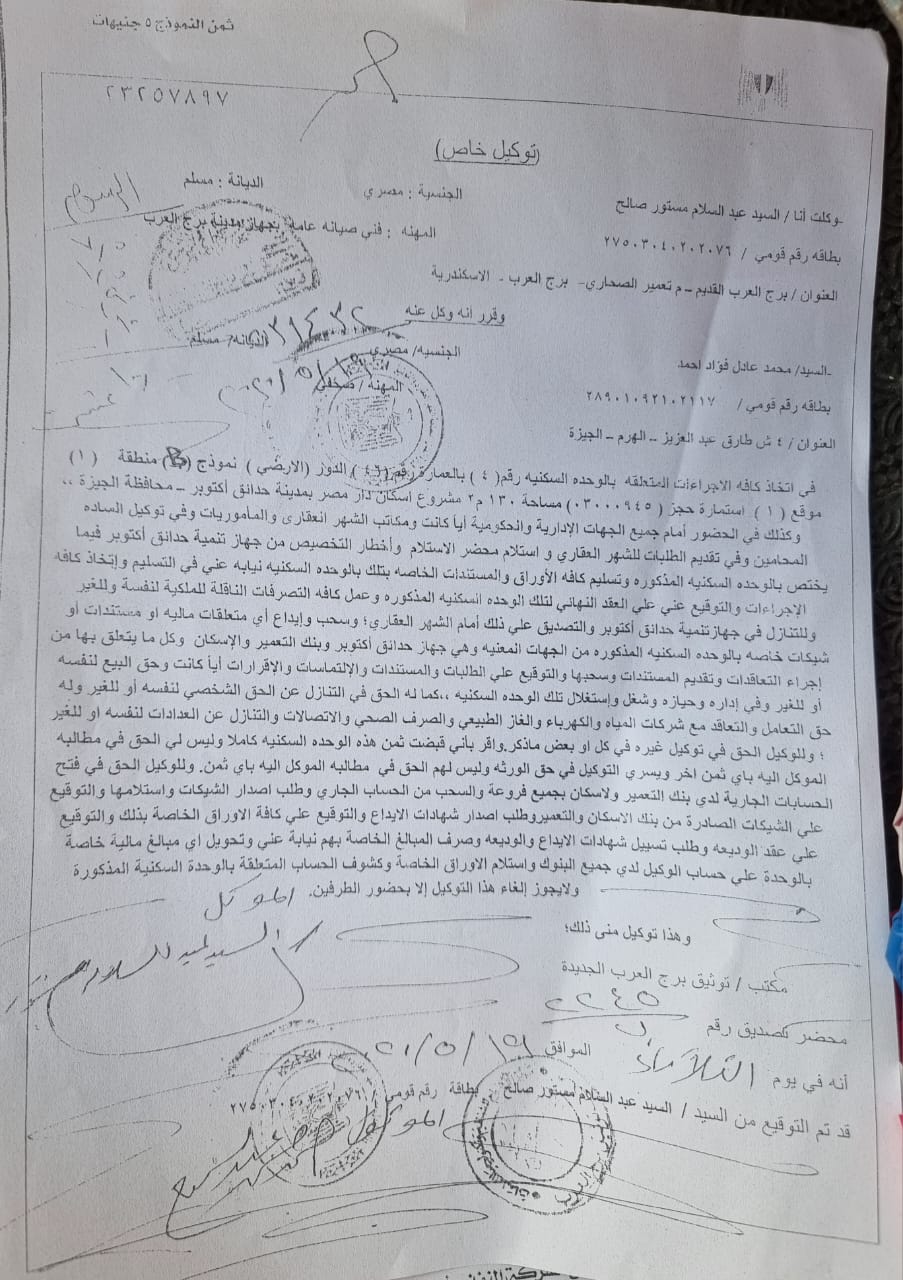 ثمن النموذج ٥ جنيهات
٢٣٢٥٧٨٩٧
(توكيل خاص)
-وكلت أنا / السيد عبد السلام مستور صالح الجنسية : مصري الديانة : مسلم
بطاقه رقم قومي / ٢٧٥٠٣٠٤٠٢٠٢٠٧٦ المهنه : فني صيانه عامه بجهاز مدينة برج العرب
العنوان / برج العرب القديم – م تعمير الصحاري- برج العرب - الاسكندرية
وقرر أنه وكل عنه
-السيد/ محمد عادل فؤاد احمد الجنسيه/ مصري الديانه/ مسلم
بطاقه رقم قومي / ٢٨٩٠١٠٩٢١٠٢١١٧ المهنه / صحفي
العنوان / ٤ ش طارق عبد العزيز – الهرم – الجيزة
في اتخاذ كافه الاجراءات المتعلقه بالوحده السكنيه رقم( ٤ ) بالعمارة رقم (٤٦) الدور (الارضي ) نموذج (B) منطقة (١)
موقع (١ ) استمارة حجز (٠٣٠٠٠٩٤٥) مساحة ١٣٠ م٢ مشروع اسكان دار مصر بمدينة حدائق أكتوبر – محافظة الجيزة ،،
وكذلك في الحضور أمام جميع الجهات الإدارية والحكومية أيا كانت ومكاتب الشهر العقارى والمأموريات وفي توكيل الساده
المحامين وفي تقديم الطلبات للشهر العقاري و استلام محضر الاستلام وأخطار التخصيص من جهاز تنمية حدائق أكتوبر فيما
يختص بالوحده السكنيه المذكوره وتسليم كافه الأوراق والمستندات الخاصه بتلك بالوحده السكنيه نيابه عني في التسليم وإتخاذ كافه
الاجراءات والتوقيع عني علي العقد النهائي لتلك الوحده السكنيه المذكوره وعمل كافه التصرفات الناقلة للملكية لنفسة وللغير
وللتنازل في جهازتنمية حدائق أكتوبر والتصديق علي ذلك أمام الشهر العقاري؛ وسحب وإيداع أي متعلقات ماليه او مستندات أو
شيكات خاصه بالوحده السكنيه المذكوره من الجهات المعنيه وهي جهاز حدائق أكتوبر وبنك التعمير والإسكان وكل ما يتعلق بها من
إجراء التعاقدات وتقديم المستندات وسحبها والتوقيع علي الطلبات والمستندات والإلتماسات والإقرارات أياً كانت وحق البيع لنفسه
أو للغير وفي إداره وحيازه وشغل وإستغلال تلك الوحده السكنيه ،،كما له الحق في التنازل عن الحق الشخصي لنفسه أو للغير وله
حق التعامل والتعاقد مع شركات المياه والكهرباء والغاز الطبيعي والصرف الصحي والاتصالات والتنازل عن العدادات لنفسه او للغير
؛ وللوكيل الحق في توكيل غيره في كل او بعض ماذكر.واقر بأني قبضت ثمن هذه الوحده السكنيه كاملا وليس لي الحق في مطالبه
الموكل اليه باي ثمن اخر ويسري التوكيل في حق الورثه وليس لهم الحق في مطالبه الموكل اليه باي ثمن. وللوكيل الحق في فتح
الحسابات الجارية لدي بنك التعمير ولاسكان بجميع فروعة والسحب من الحساب الجاري وطلب اصدار الشيكات واستلامها والتوقيع
علي الشيكات الصادرة من بنك الاسكان والتعميروطلب اصدار شهادات الايداع والتوقيع علي كافة الاوراق الخاصة بذلك والتوقيع
علي عقد الوديعه وطلب تسييل شهادات الايداع والوديعه وصرف المبالغ الخاصة بهم نيابة عني وتحويل اي مبالغ مالية خاصة
بالوحدة علي حساب الوكيل لدي جميع البنوك واستلام الاوراق الخاصة وكشوف الحساب المتعلقة بالوحدة السكنية المذكورة
ولايجوز إلغاء هذا التوكيل إلا بحضور الطرفين.
الموكل
وهذا توكيل منى ذلك؛
مكتب / توثيق برج العرب الجديدة
محضر تصديق رقم ٢٢٤٥
أنه في يوم الثلاثاء الموافق
قد تم التوقيع من السيد / السيد عبد السلام مستور صالح بطاقة رقم قومي / ٢٧٥٠٣٠٤٠٢٠٢٠٧٦